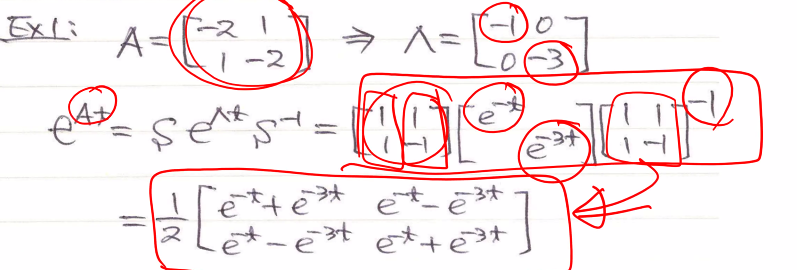 Ex1: A = [-2 1; 1 -2] ⇒ Λ = [-1 0; 0 -3]
e^{At} = S e^{Λt} S^{-1} = [1 1; 1 -1] [e^{-t} ; e^{-3t}] [1 1; 1 -1]^{-1}
= 1/2 [e^{-t}+e^{-3t} e^{-t}-e^{-3t}; e^{-t}-e^{-3t} e^{-t}+e^{-3t}]